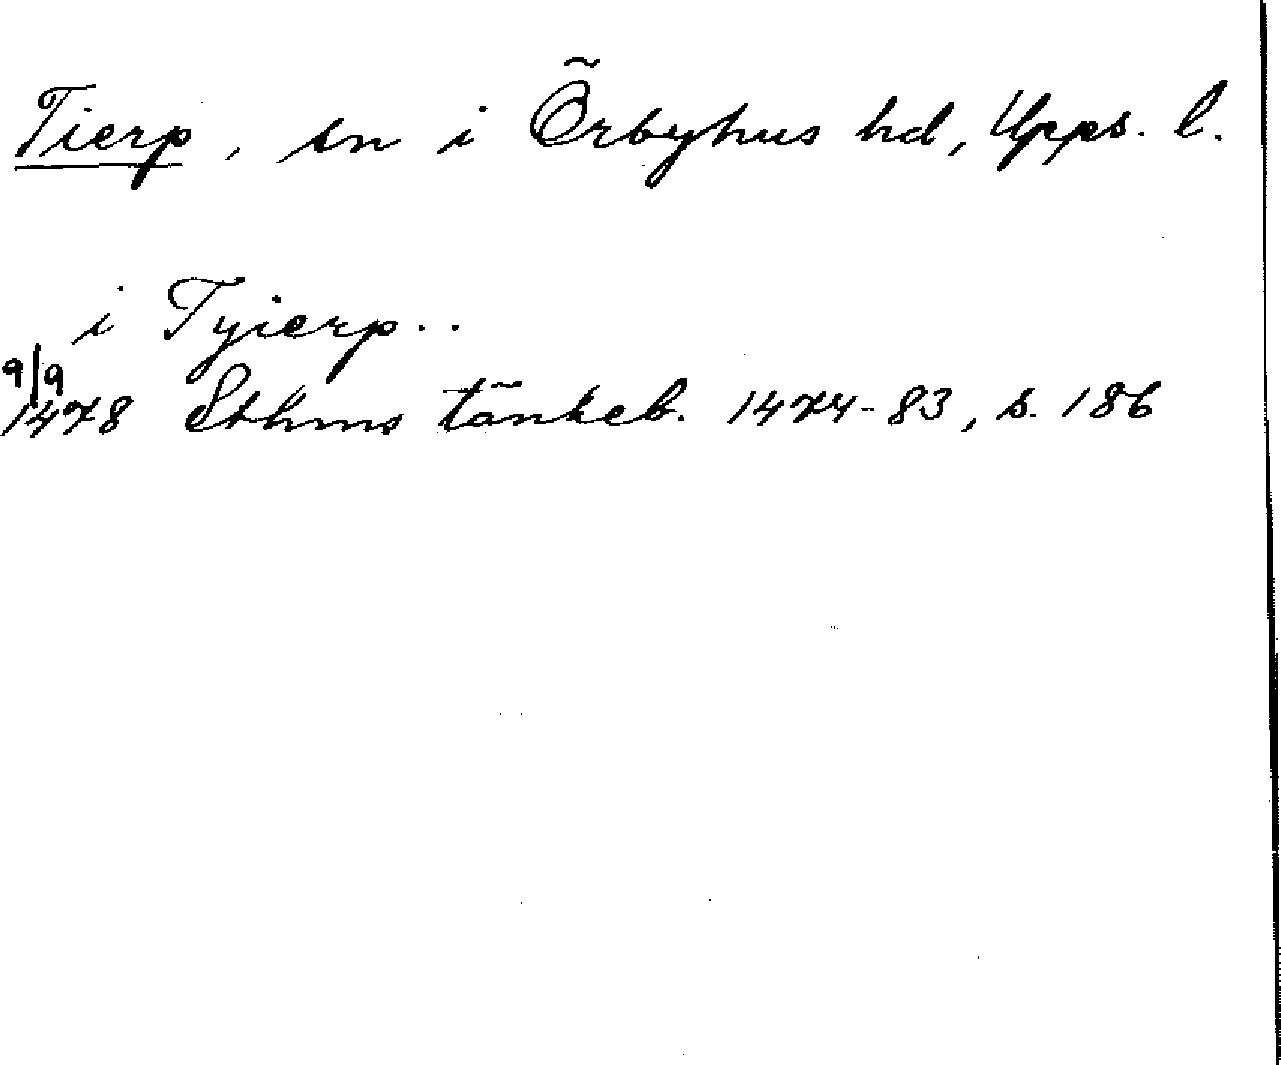 Tierp, sn i Örbyhus hd, Upps. l.
i Tyierp..
9/9
1478 Sthms tänkeb. 1474-83, s. 186